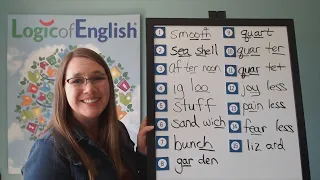 Logic of English®
1 smooth
2 sea shell
3 after noon
4 ig loo
5 stuff
6 sand wich
7 bunch
8 gar den
9 quart
10 quar ter
11 quar tet
12 joy less
13 pain less
14 fear less
15 liz ard